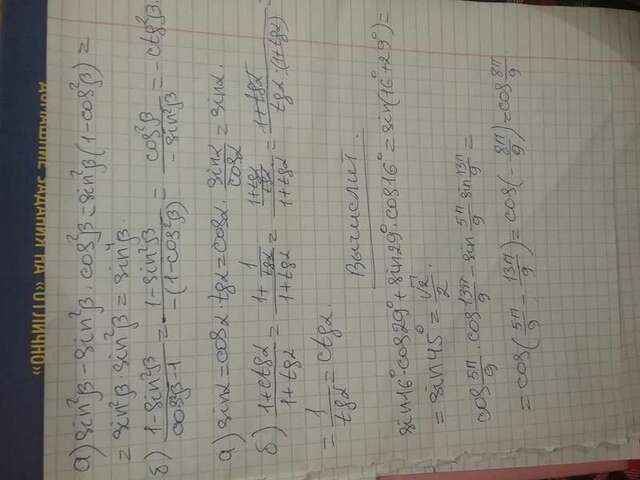 ДОМАШНИЕ ЗАДАНИЯ НА «ОТЛИЧНО»
а) sin²β − sin²β · cos²β = sin²β (1 − cos²β) =
= sin²β · sin²β = sin⁴β.
б) (1 − sin²β)/(cos²β − 1) = (1 − sin²β)/(−(1 − cos²β)) = cos²β/(−sin²β) = −ctg²β.
а) sinα = cosα · tgα = cosα · sinα/cosα = sinα.
б) (1 + ctgα)/(1 + tgα) = (1 + 1/tgα)/(1 + tgα) = ((1 + tgα)/tgα)/(1 + tgα) = (1 + tgα)/(tgα · (1 + tgα)) =
= 1/tgα = ctgα.
Вычислит.
sin16° · cos29° + sin29° · cos16° = sin(16° + 29°) =
= sin45° = √2/2.
cos 5π/9 · cos 13π/9 − sin 5π/9 sin 13π/9 =
= cos(5π/9 − 13π/9) = cos(−8π/9) = cos 8π/9